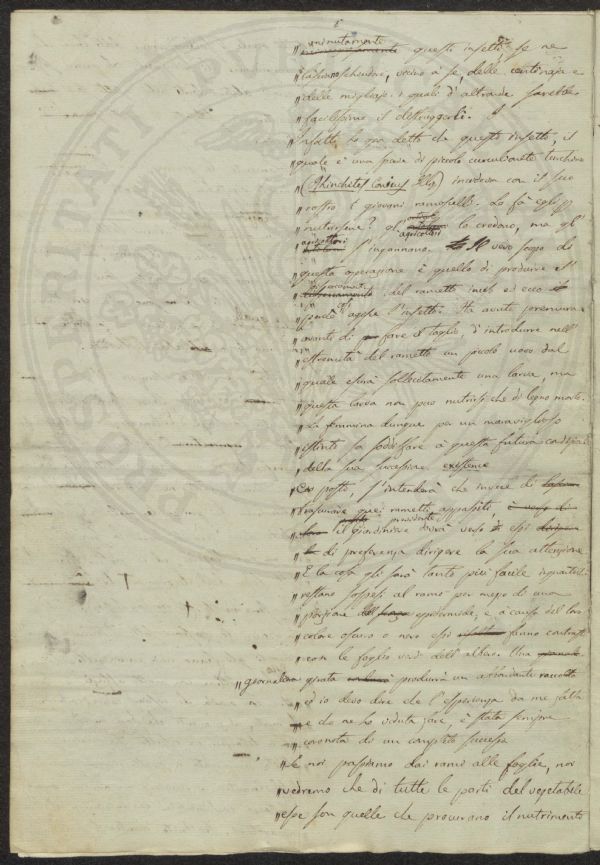 unitamente
" questi insetti se ne
" schiudere, vicino a se delle centinaja e
" delle migliaja i quali d'altronde sarebbe
" facilissimo il distruggerli. È
Infatti ho già detto che questo insetto, il
quale è una specie di piccolo curculionite turchino
" (Rhinchites Conicus Illig) incideva con il suo
" rostro i giovani ramoscelli. Lo fà egli p
" nutrirsene? gl' agricoltori lo credono, ma gl'
" agricoltori s'ingannano. Il vero scopo di
" questa operazione è quello di produrre il
" del rametto inciso ed ecco
" agisce l'insetto. Ha avuto premura
" avanti di fare il taglio, d'introdurre nell'
" estremità del rametto un piccolo uovo dal
" quale escirà sollecitamente una larva, ma
" questa larva non può nutrirsi che di legno morto.
" La femmina dunque per un maraviglioso
" istinto sa soddisfare a questa futura condizione
" della sua successione existence
" Ciò posto, s'intenderà che invece di
" trascurare quei rametti appassiti,
" il giardiniere dovrà verso di essi
" di preferenza dirigere la sua attenzione
" E la cosa gli sarà tanto più facile inquantochè
" restano sospesi al ramo per mezzo di una
" porzione epidermide, e a causa del loro
" colore oscuro o nero essi fanno contrasto
" con le foglie verdi dell'albero. Una
" giornaliera produrrà un abbondante raccolta
" ed io devo dire che l'esperienza da me fatta
" e che ne ho veduta fare, è stata sempre
" coronata di un completo successo
" Se noi passiamo dai rami alle foglie, noi
" vedremo che di tutte le parti del vegetabile
" esse son quelle che procurano il nutrimento